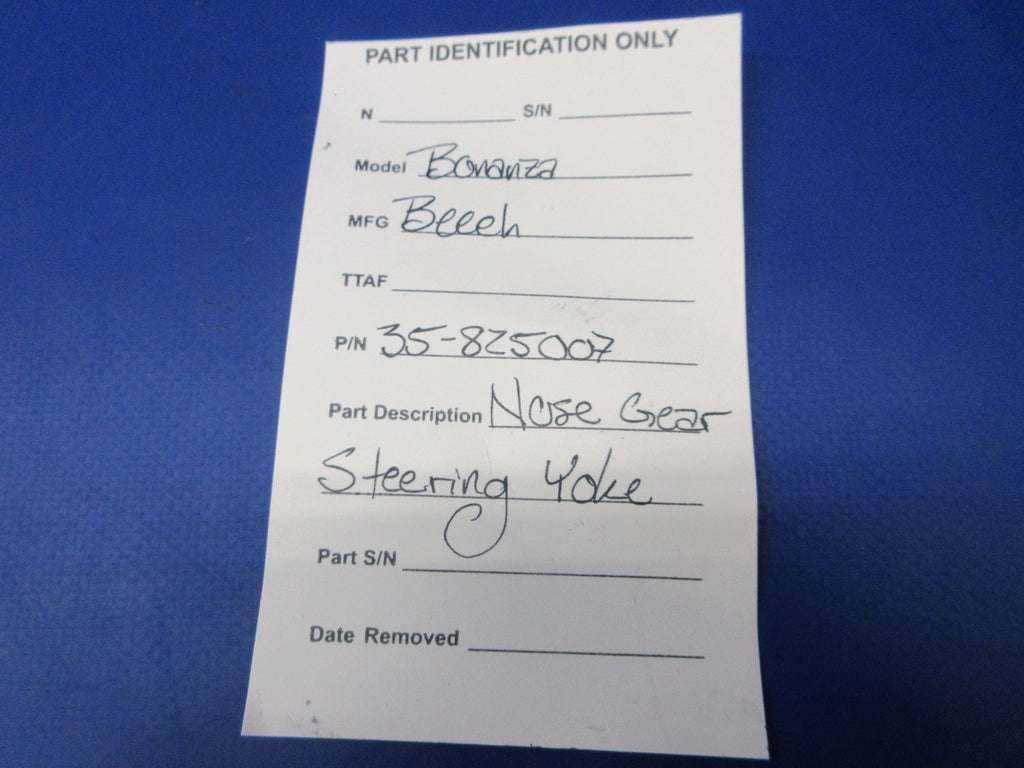 PART IDENTIFICATION ONLY
N S/N
Model Bonanza
MFG Beech
TTAF
P/N 35-825007
Part Description Nose Gear
Steering Yoke
Part S/N
Date Removed